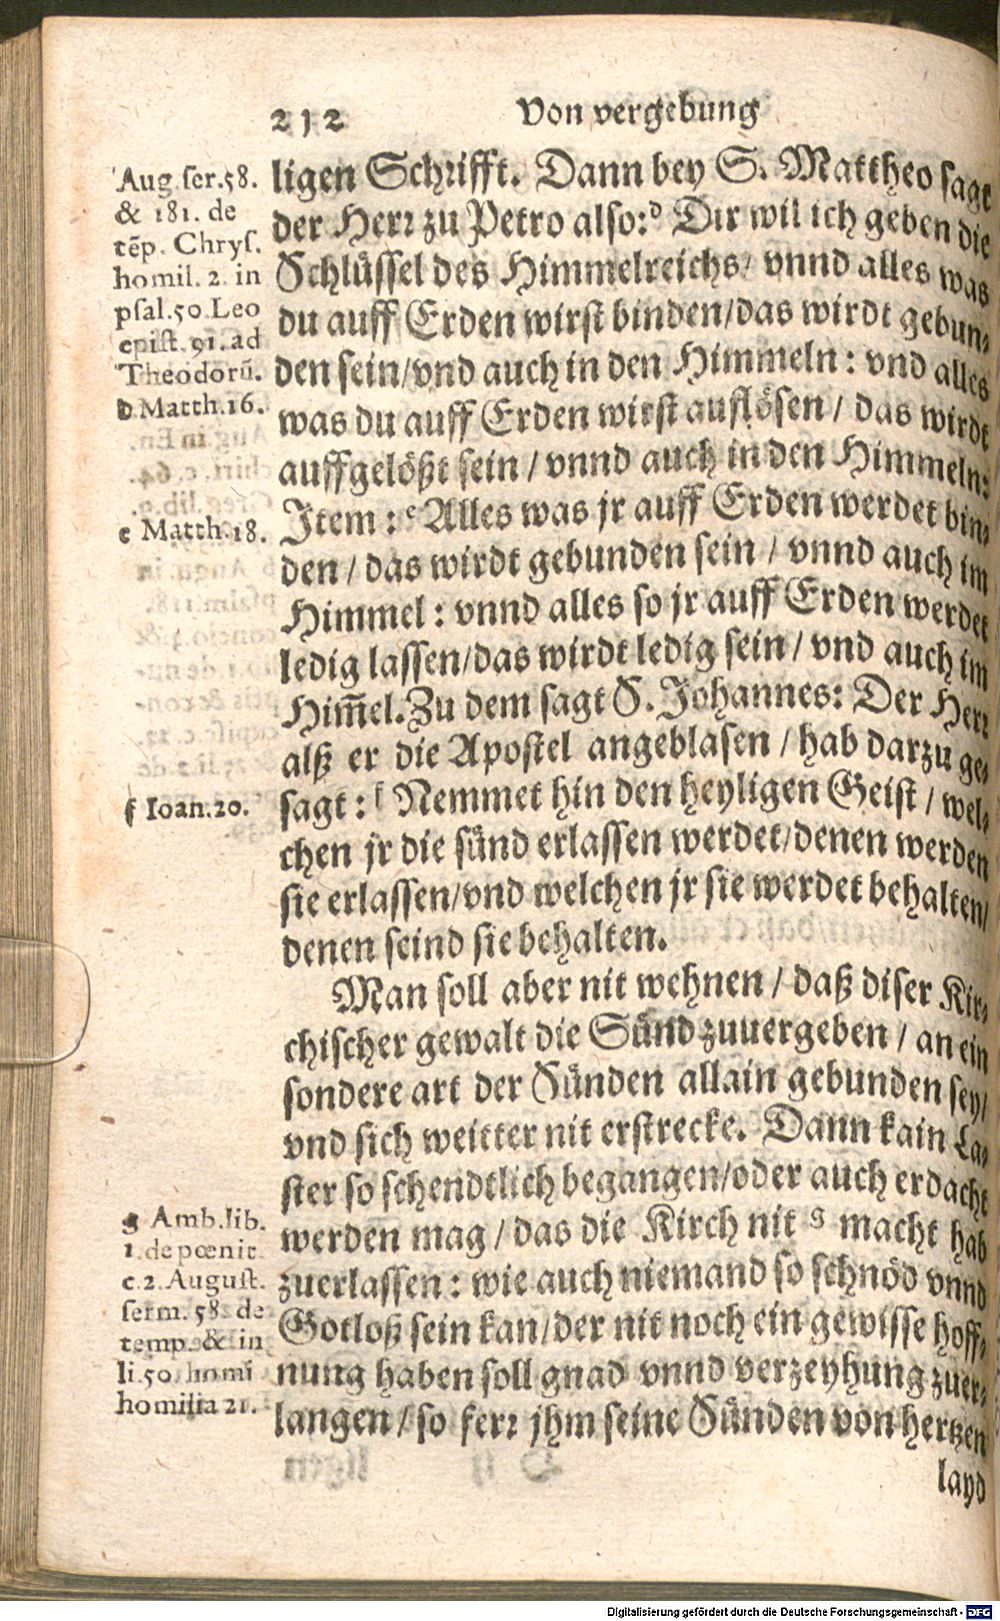 212 Von vergebung
ligen Schrifft. Dann bey S. Mattheo sagt
der Herr zu Petro also:ᵈ Dir wil ich geben die
Schlüssel des Himmelreichs/ vnnd alles was
du auff Erden wirst binden/das wirdt gebun-
den sein/vnd auch in den Himmeln: vnd alles
was du auff Erden wirst auflösen/ das wirdt
auffgelößt sein/ vnnd auch in den Himmeln:
Item:ᵉ Alles was jr auff Erden werdet bin-
den/ das wirdt gebunden sein/ vnnd auch im
Himmel: vnnd alles so jr auff Erden werdet
ledig lassen/das wirdt ledig sein/ vnd auch im
Him̄el. Zu dem sagt S. Johannes: Der Herr
alß er die Apostel angeblasen/ hab darzu ge-
sagt:ᶠ Nemmet hin den heyligen Geist/ wel-
chen jr die sünd erlassen werdet/denen werden
sie erlassen/vnd welchen jr sie werdet behalten/
denen seind sie behalten.
Man soll aber nit wehnen/ daß diser Kir-
chischer gewalt die Sünd zuuergeben/ an ein
sondere art der Sünden allain gebunden sey/
vnd sich weitter nit erstrecke. Dann kain La-
ster so schendtlich begangen/oder auch erdacht
werden mag/ das die Kirch nit ᵍ macht hab
zuerlassen: wie auch niemand so schnöd vnnd
Gotloß sein kan/der nit noch ein gewisse hoff-
nung haben soll gnad vnnd verzeyhung zuer-
langen/ so ferr jhm seine Sünden von hertzen
layd
Aug. ser. 58.
& 181. de
tēp. Chrys.
homil. 2. in
psal. 50. Leo
epist. 91. ad
Theodorū.
d Matth. 16.
e Matth. 18.
f Ioan. 20.
g Amb. lib.
1. de pœnit.
c. 2. August.
serm. 58. de
temp. & in
li. 50. homi
homilia 21.
Digitalisierung gefördert durch die Deutsche Forschungsgemeinschaft - DFG